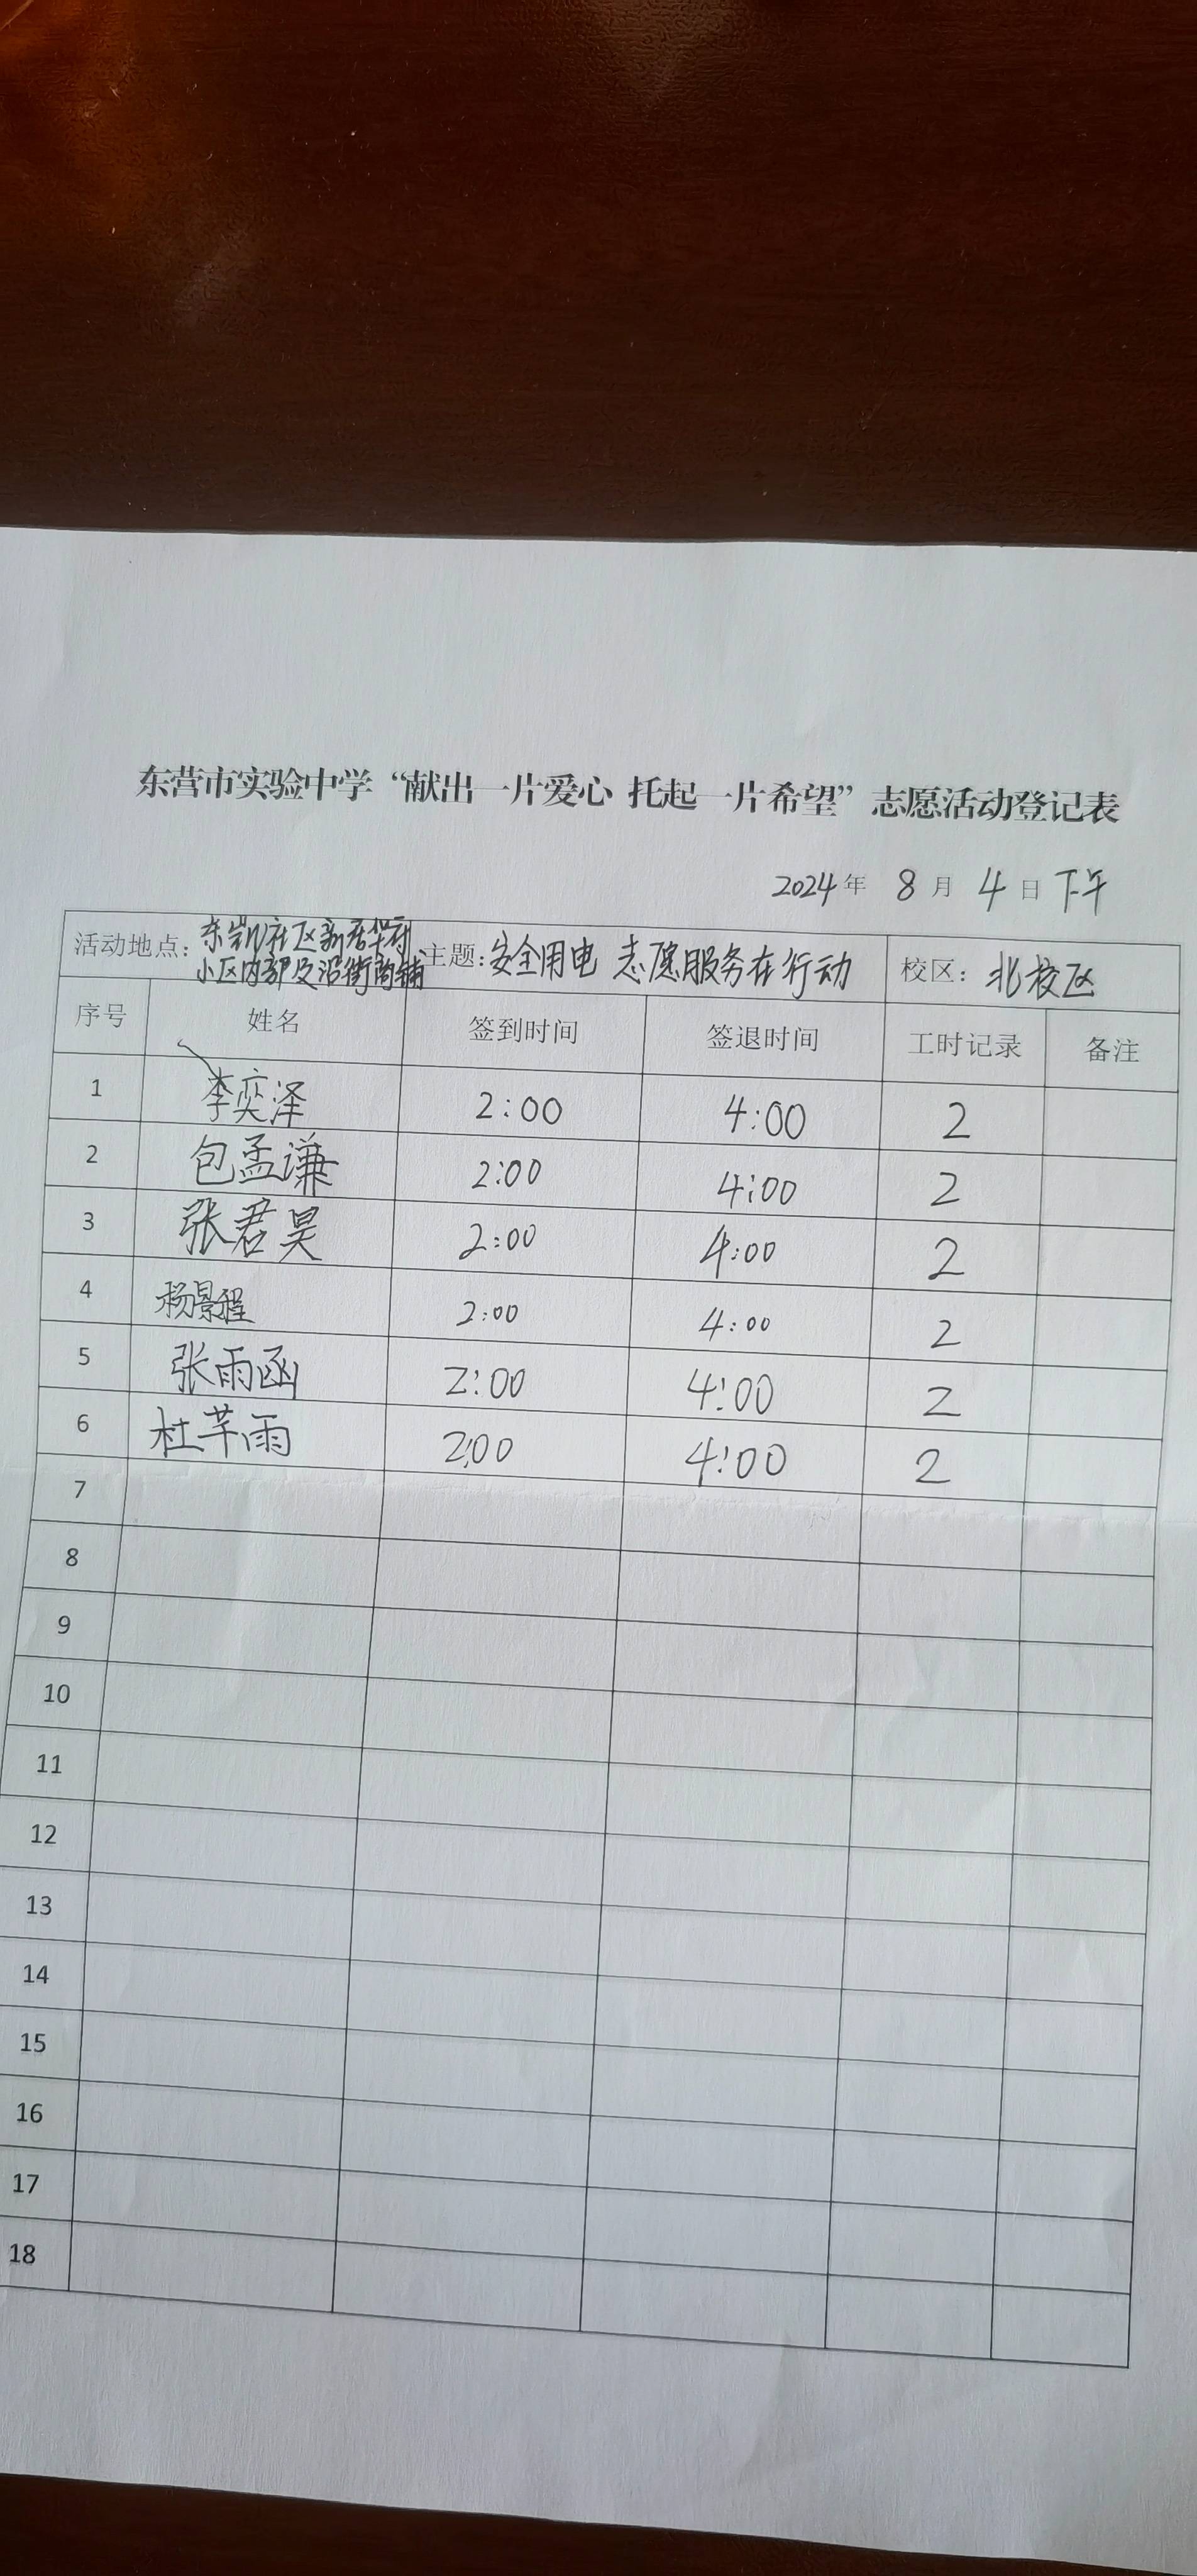 东营市实验中学“献出一片爱心 托起一片希望”志愿活动登记表
2024年 8月 4日 下午
活动地点: 社区新居华府小区内部及沿街商铺 主题: 安全用电 志愿服务在行动 校区: 北校区
序号 姓名 签到时间 签退时间 工时记录 备注
1 李奕泽 2:00 4:00 2
2 包孟谦 2:00 4:00 2
3 张君昊 2:00 4:00 2
4 杨景程 2:00 4:00 2
5 张雨函 2:00 4:00 2
6 杜芊雨 2:00 4:00 2
7
8
9
10
11
12
13
14
15
16
17
18